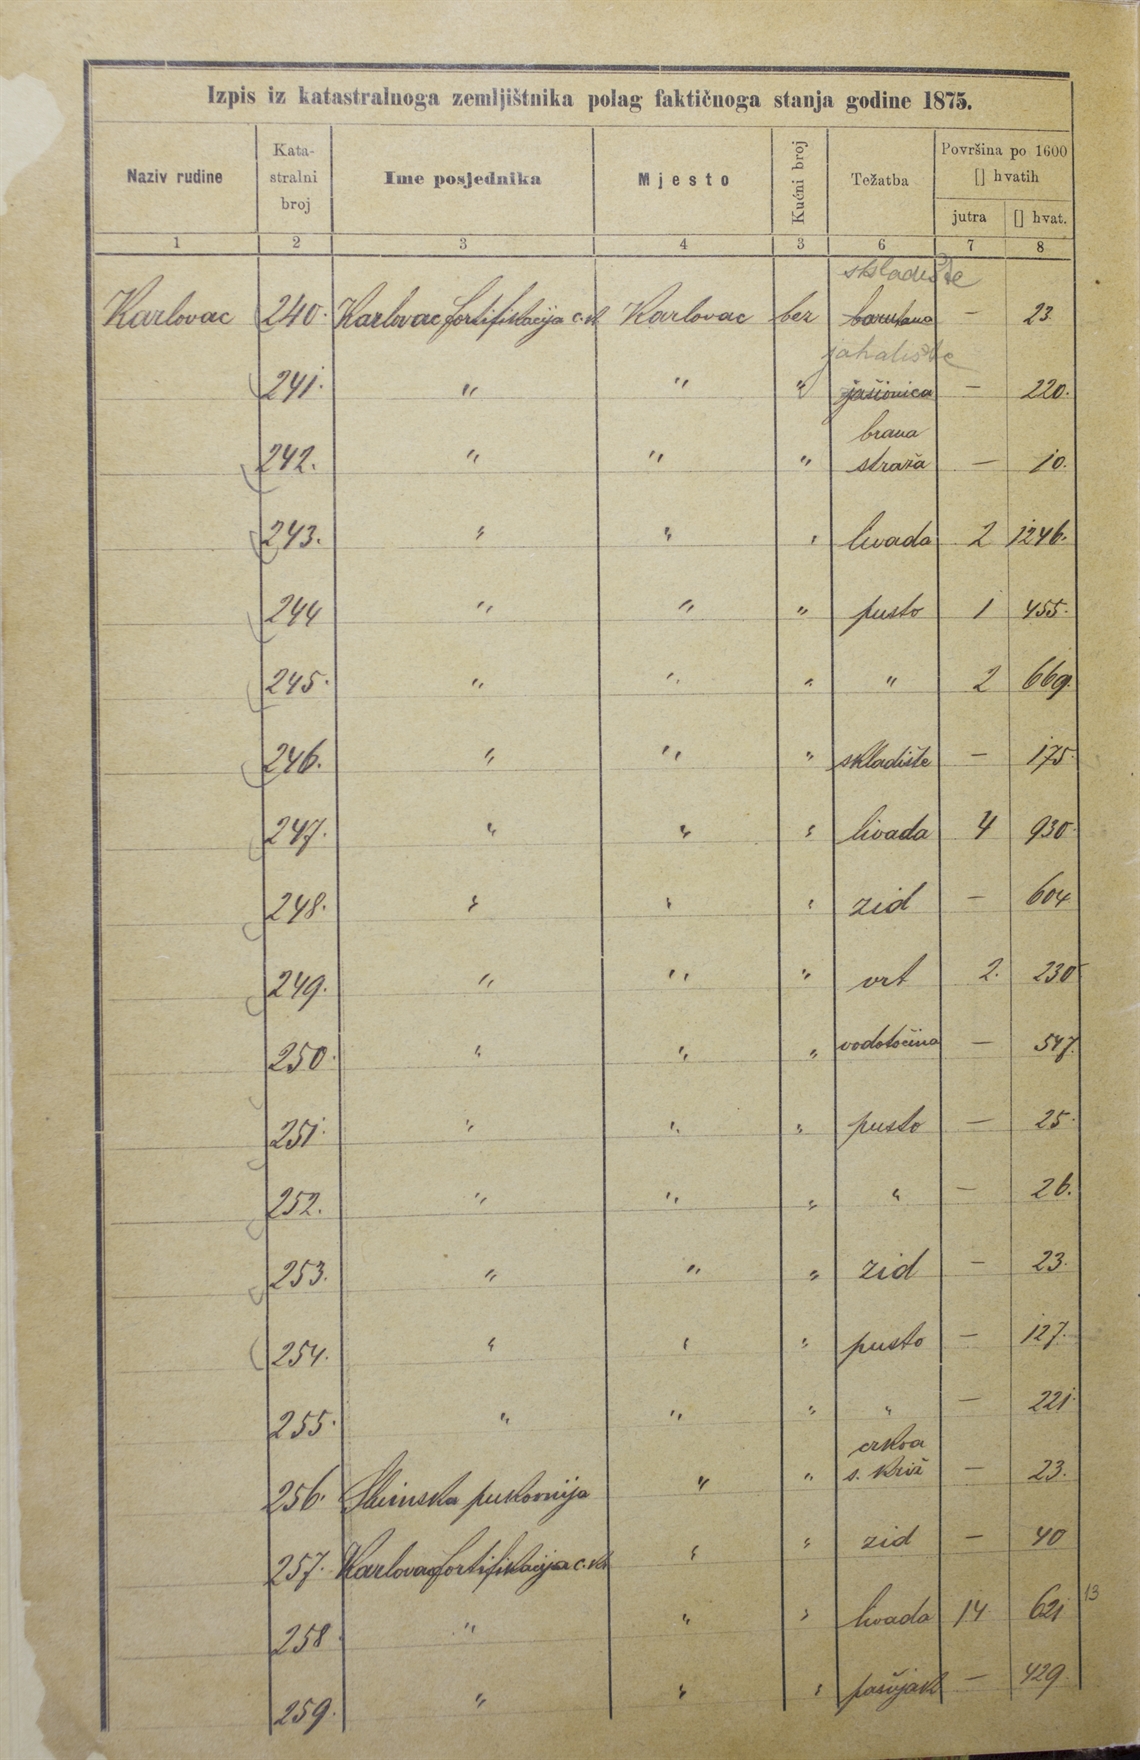 Izpis iz katastralnoga zemljištnika polag faktičnoga stanja godine 1875.
Naziv rudine Kata-stralni broj Ime posjednika Mjesto Kućni broj Težatba Površina po 1600 [] hvatih
jutra [] hvat.
1 2 3 4 3 6 7 8
skladište
Karlovac 240. Karlovac fortifikacija c. kr Karlovac bez barutana — 23.
jahalište
241. " " " jašionica — 220.
brana
242. " " " straža — 10.
243. " " " livada 2 1246.
244 " " " pusto 1 455.
245. " " " " 2 669.
246. " " " skladište — 175.
247. " " " livada 4 930.
248. " " " zid — 604
249. " " " vrt 2. 230
250. " " " vodotočina — 547.
251. " " " pusto — 25.
252. " " " " — 26.
253. " " " zid — 23.
254. " " " pusto — 127.
255. " " " " — 221.
crkva
256. Sluinska pukovnija " " s. Križ — 23.
257. Karlovac fortifikacija c. kr " " zid — 40
258. " " " livada 14 621 13
259. " " " pašnjak — 429.